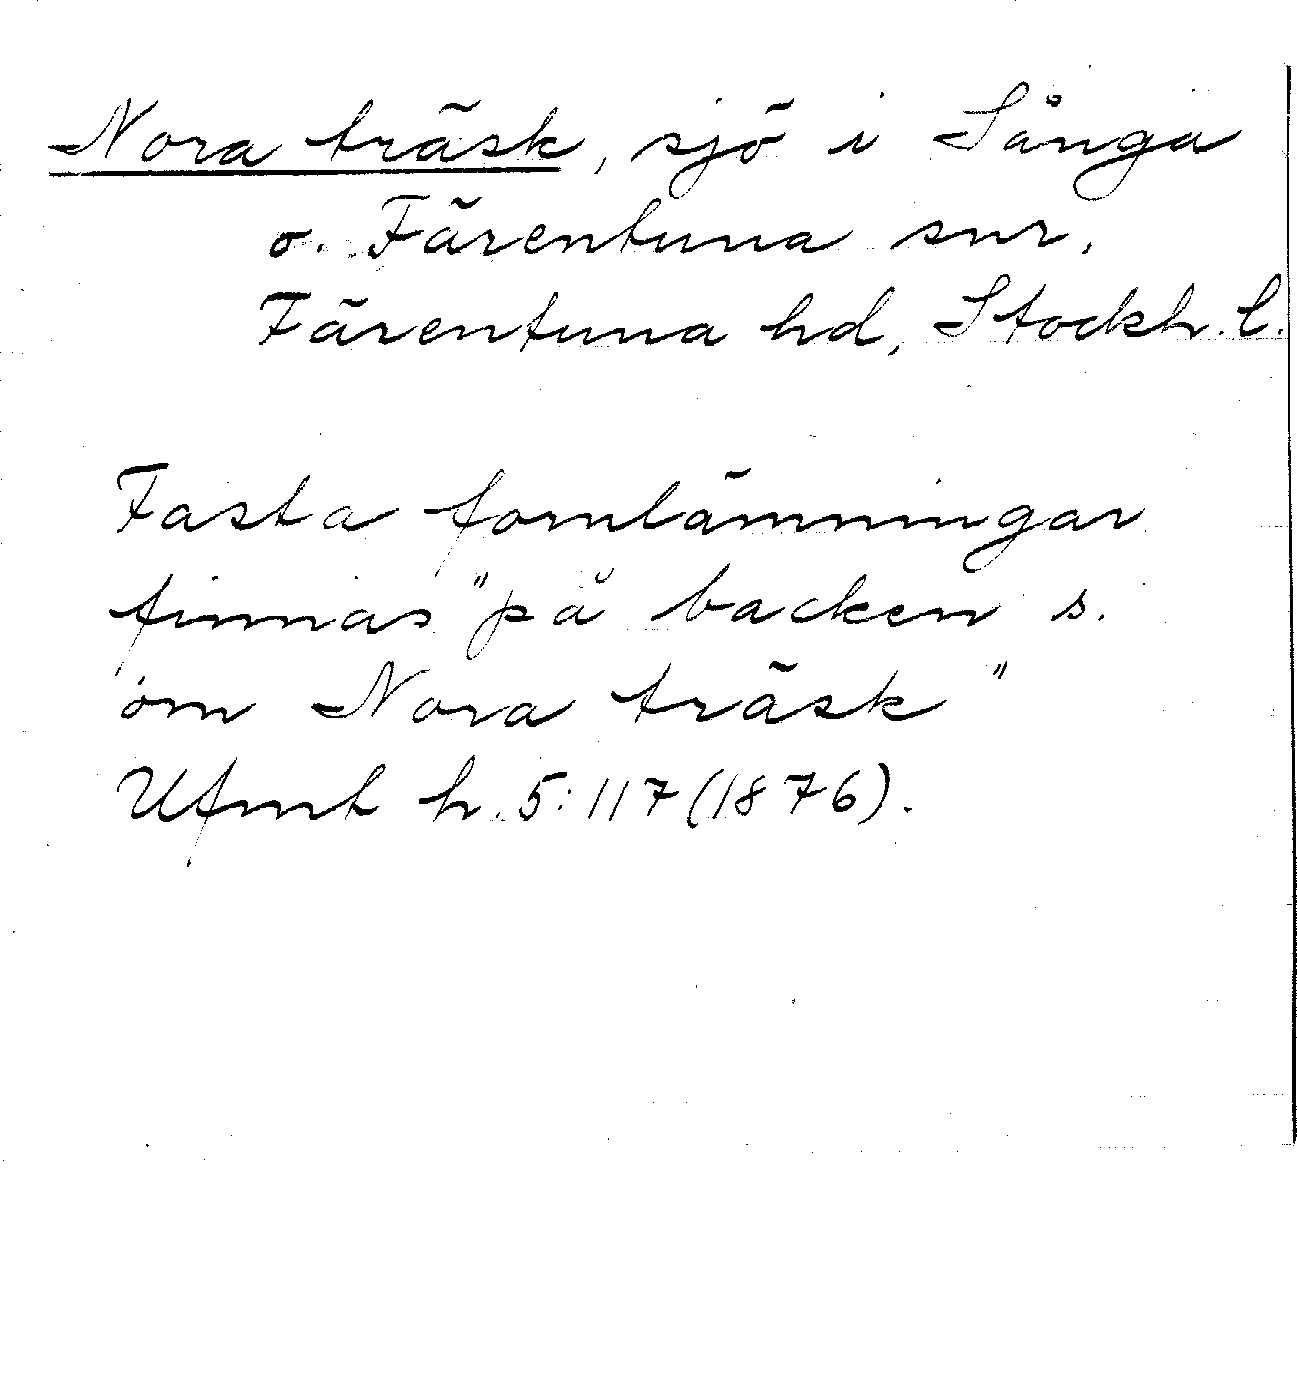 Nora träsk, sjö i Sånga
o. Färentuna snr,
Färentuna hd, Stockh. l.
Fasta fornlämningar
finnas "på backen s.
om Nora träsk"
Ufmt h. 5:117 (1876).